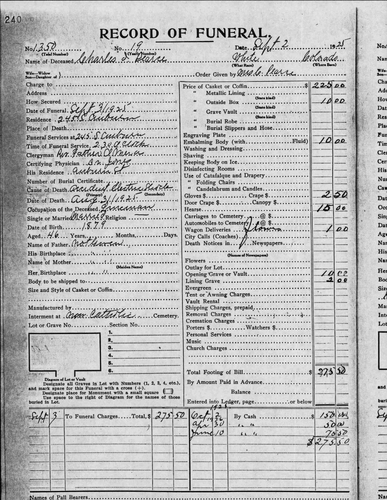 240
RECORD OF FUNERAL
No. 1350 No. 19 Date Sept 2 1925
(Total Number) (Yearly Number)
Name of Deceased Charles Pearce White Colorado
(What Race) (Where Born)
Order Given by Pearce
Charge to
Address
How Secured
Date of Funeral Sept 3/1925
Residence 245 S
Place of Death
Funeral Services at 245 S
Time of Funeral Service 2:30 O'Clock
Clergyman Rev Father
Certifying Physician Dr
His Residence
Number of Burial Certificate
Cause of Death Accident Electric
Date of Death Aug 31/1925
Occupation of the Deceased Lineman
Single or Married Religion
Date of Birth 1879
Aged 46 Years Months, Days.
Name of Father
His Birthplace
Name of Mother
(Maiden Name)
Her Birthplace
Body to be shipped to
Size and Style of Casket or Coffin
Manufactured by
Interment at Catholic Cemetery.
Lot or Grave No. Section No.
1.
2.
3.
4.
5.
6.
7.
8.
Diagram of Lot or Vault
Designate all Graves in Lot with Numbers (1, 2, 3, 4, etc.),
and mark space for this Funeral with a cross (+).
Designate place for Monument with a small square
Use space to the right of Diagram for the names of those
buried in Lot.
Price of Casket or Coffin $ 225 00
" Metallic Lining
(State kind)
" Outside Box 10 00
(State kind)
" Grave Vault
(State kind)
" Burial Robe
(State kind)
" Burial Slippers and Hose
Engraving Plate
Embalming Body (with Fluid) $ 10 00
Washing and Dressing
Shaving
Keeping Body on Ice
Disinfecting Rooms
Use of Catafalque and Drapery
" Folding Chairs
" Candelabrum and Candles
Gloves $ Crape $ 2 50
Door Crape Canopy $
Hearse 15 00
Carriages to Cemetery @ $
Automobiles to Cemetery @ $
Wagon Deliveries 1 00
City Calls (Coaches)
Death Notices in Newspapers
(Names of Newspapers)
Flowers
Outlay for Lot
Opening Grave or Vault 10 00
Lining Grave 2 00
Evergreen
Tent or Awning Charges
Vault Rental
Shipping Charges, prepaid,
Removal Charges
Cremation Charges
Porters $ Watchers $
Personal Services
Music
Church Charges
Total Footing of Bill $ 275 50
By Amount Paid in Advance
Balance
Entered into Ledger, page or below.
Sept 3 To Funeral Charges, Total, $ 275 50 Oct By Cash $ 150
Apr 30 " " 50 00
June 10 " "
$275.50
Name of Pall Bearers